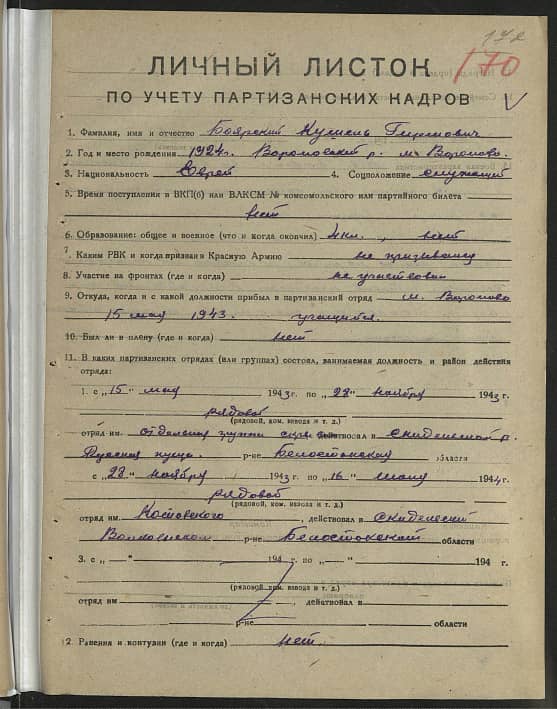 172
170
ЛИЧНЫЙ ЛИСТОК
ПО УЧЕТУ ПАРТИЗАНСКИХ КАДРОВ V
1. Фамилия, имя и отчество Боярский
2. Год и место рождения 1924г. Вороновский р. м. Вороново.
3. Национальность Еврей 4. Соцположение служащий
5. Время поступления в ВКП(б) или ВЛКСМ № комсомольского или партийного билета
нет
6. Образование: общее и военное (что и когда окончил) 4кл., нет
7. Каким РВК и когда призван в Красную Армию не призывался
8. Участие на фронтах (где и когда) не участвовал
9. Откуда, когда и с какой должности прибыл в партизанский отряд м. Вороново
15 мая 1943. учащийся.
10. Был ли в плену (где и когда) нет
11. В каких партизанских отрядах (или группах) состоял, занимаемая должность и район действия
отряда:
1. с „15" мая 1943г. по „28" ноября 1943г.
рядовой
(рядовой, ком. взвода и т. д.)
отряд им. отдельная группа действовал в Скидельском р.
пуща. р-не Белостокская области
с „28" ноября 1943г. по „16" июля 1944г.
рядовой
(рядовой, ком. взвода и т. д.)
отряд им. Котовского, действовал в Скидельский
р-не Белостокский области
3. с „ " 194 г. по „ " 194 г.
(рядовой, ком. взвода и т. д.)
отряд им , действовал в
р-не области
2. Ранения и контузии (где и когда) нет.